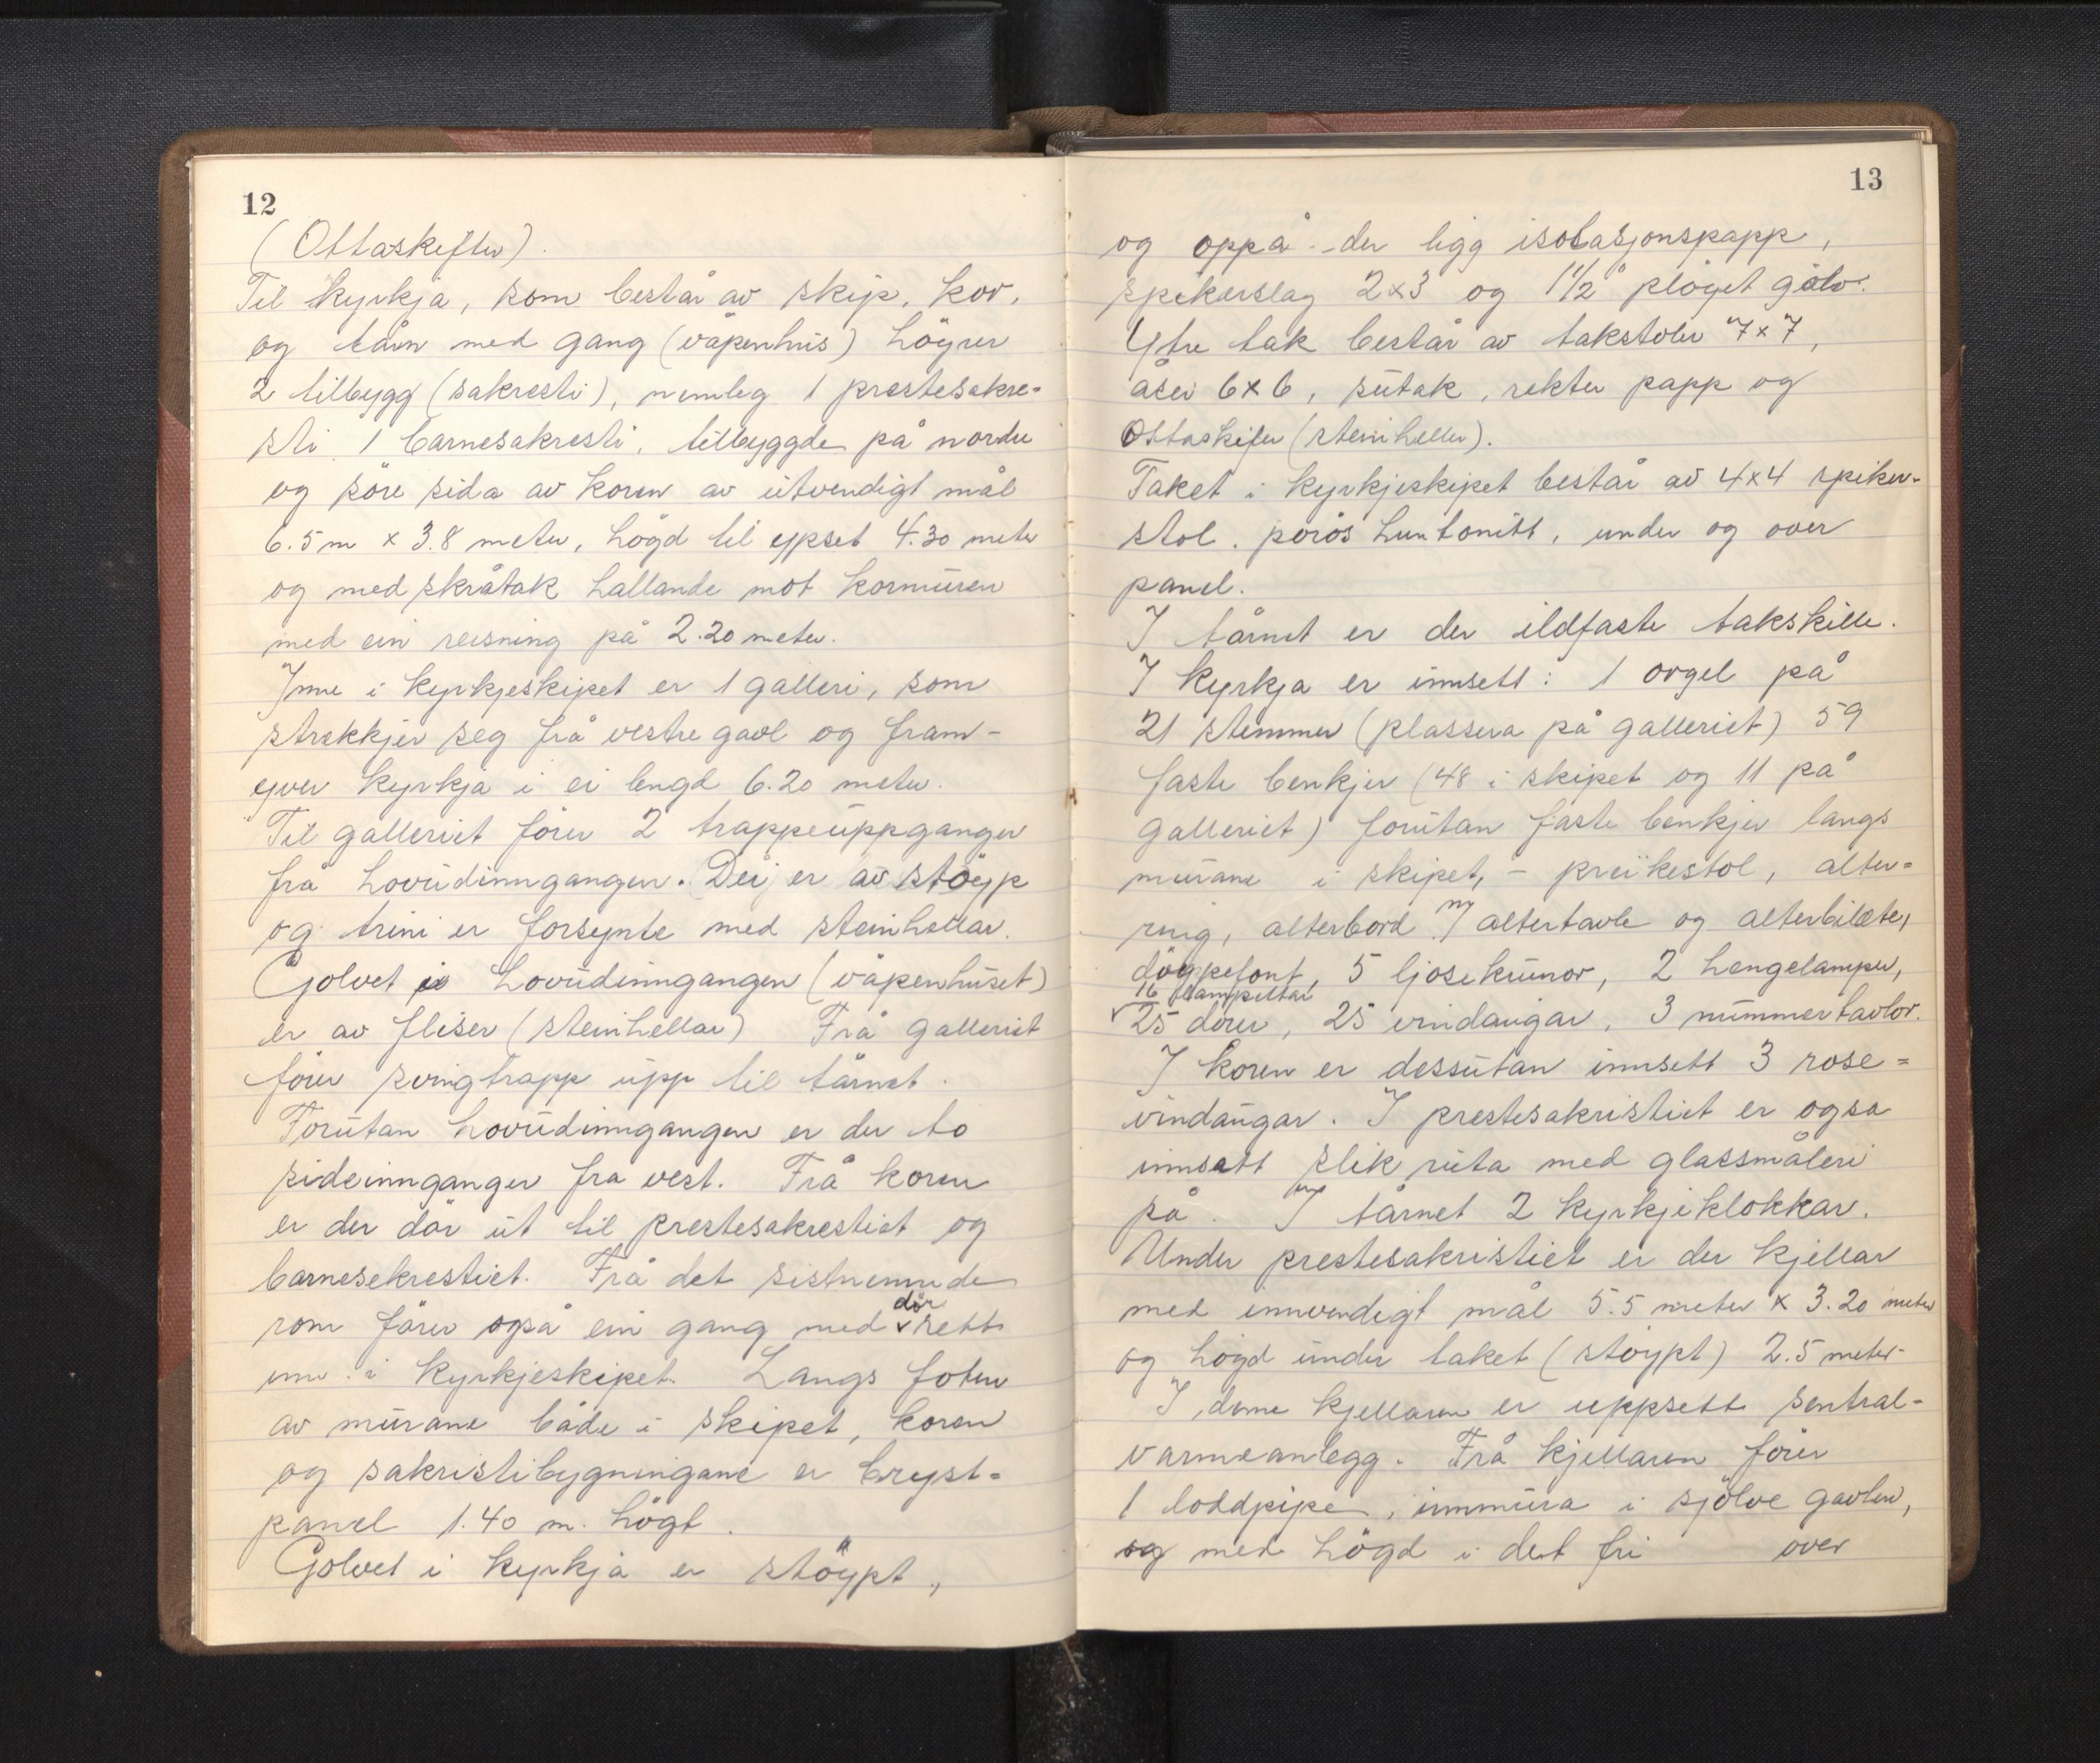 12
(Ottaskifter).
Til kyrkja, som består av skip, kor,
og tårn med gang (våpenhus) höyrer
2 tilbygg (sakresti), nemleg 1 prestesakre=
sti 1 barnesakresti, tilbyggde på nordre
og söre sida av koren av utvendigt mål
6.5 m x 3.8 meter, högd til ypset 4.30 meter
og med skråtak hallande mot kormuren
med ein reisning på 2.20 meter.
Inne i kyrkjeskipet er 1 galleri, som
strekkjer seg frå vestre gavl og fram-
yver kyrkja i ei lengd 6.20 meter.
Til galleriet förer 2 trappeuppganger
frå hovudinngangen. Dei er av stöyp
og trini er forsynte med steinhellar.
Golvet i hovudinngangen (våpenhuset)
er av fliser (steinhellar) Frå galleriet
förer svingtrapp upp til tårnet.
Forutan hovudinngangen er der to
sideinnganger fra vest. Frå koren
er der dör ut til prestesakrestiet og
barnesekrestiet. Frå det sistnemnde
rom förer også ein gang med dör rett
inn i kyrkjeskipet. Langs foten
av murane både i skipet, koren
og sakristibygningane er bryst=
panel 1.40 m. högt.
Golvet i kyrkja er stöypt,
13
og oppå der ligg isolasjonspapp,
spikerslag 2x3" og 1 1/2" plöget golv.
Ytre tak består av takstoler 7"x7",
åser 6x6, sutak, rekter papp og
Ottaskifer (steinheller).
Taket i kyrkjeskipet består av 4x4 spiker-
stol. porös huntonitt, under og over
panel.
I tårnet er der ildfaste takskille.
I kyrkja er innsett: 1 orgel på
21 stemmer (plassera på galleriet) 59
faste benkjer (48 i skipet og 11 på
galleriet) forutan faste benkjer langs
murane i skipet, - preikestol, alter=
ring, alterbord, ny altertavle og alterbilete,
döypefont, 5 ljosekrunor, 2 hengelamper,
16 lampettar
25 dörer, 25 vindaugar, 3 nummertavlor.
I koren er dessutan innsett 3 rose=
vindaugar. I prestesakristiet er ogsa
innsatt slik ruta med glassmåleri
på. I tårnet 2 kyrkjeklokkar.
Under prestesakristiet er der kjellar
med innvendigt mål 5.5 meter x 3.20 meter
og högd under taket (stöypt) 2.5 meter.
I denne kjellaren er uppsett sentral-
varmeanlegg. Frå kjellaren förer
1 loddpipe, innmura i sjölve gavlen,
og med högd i det fri over